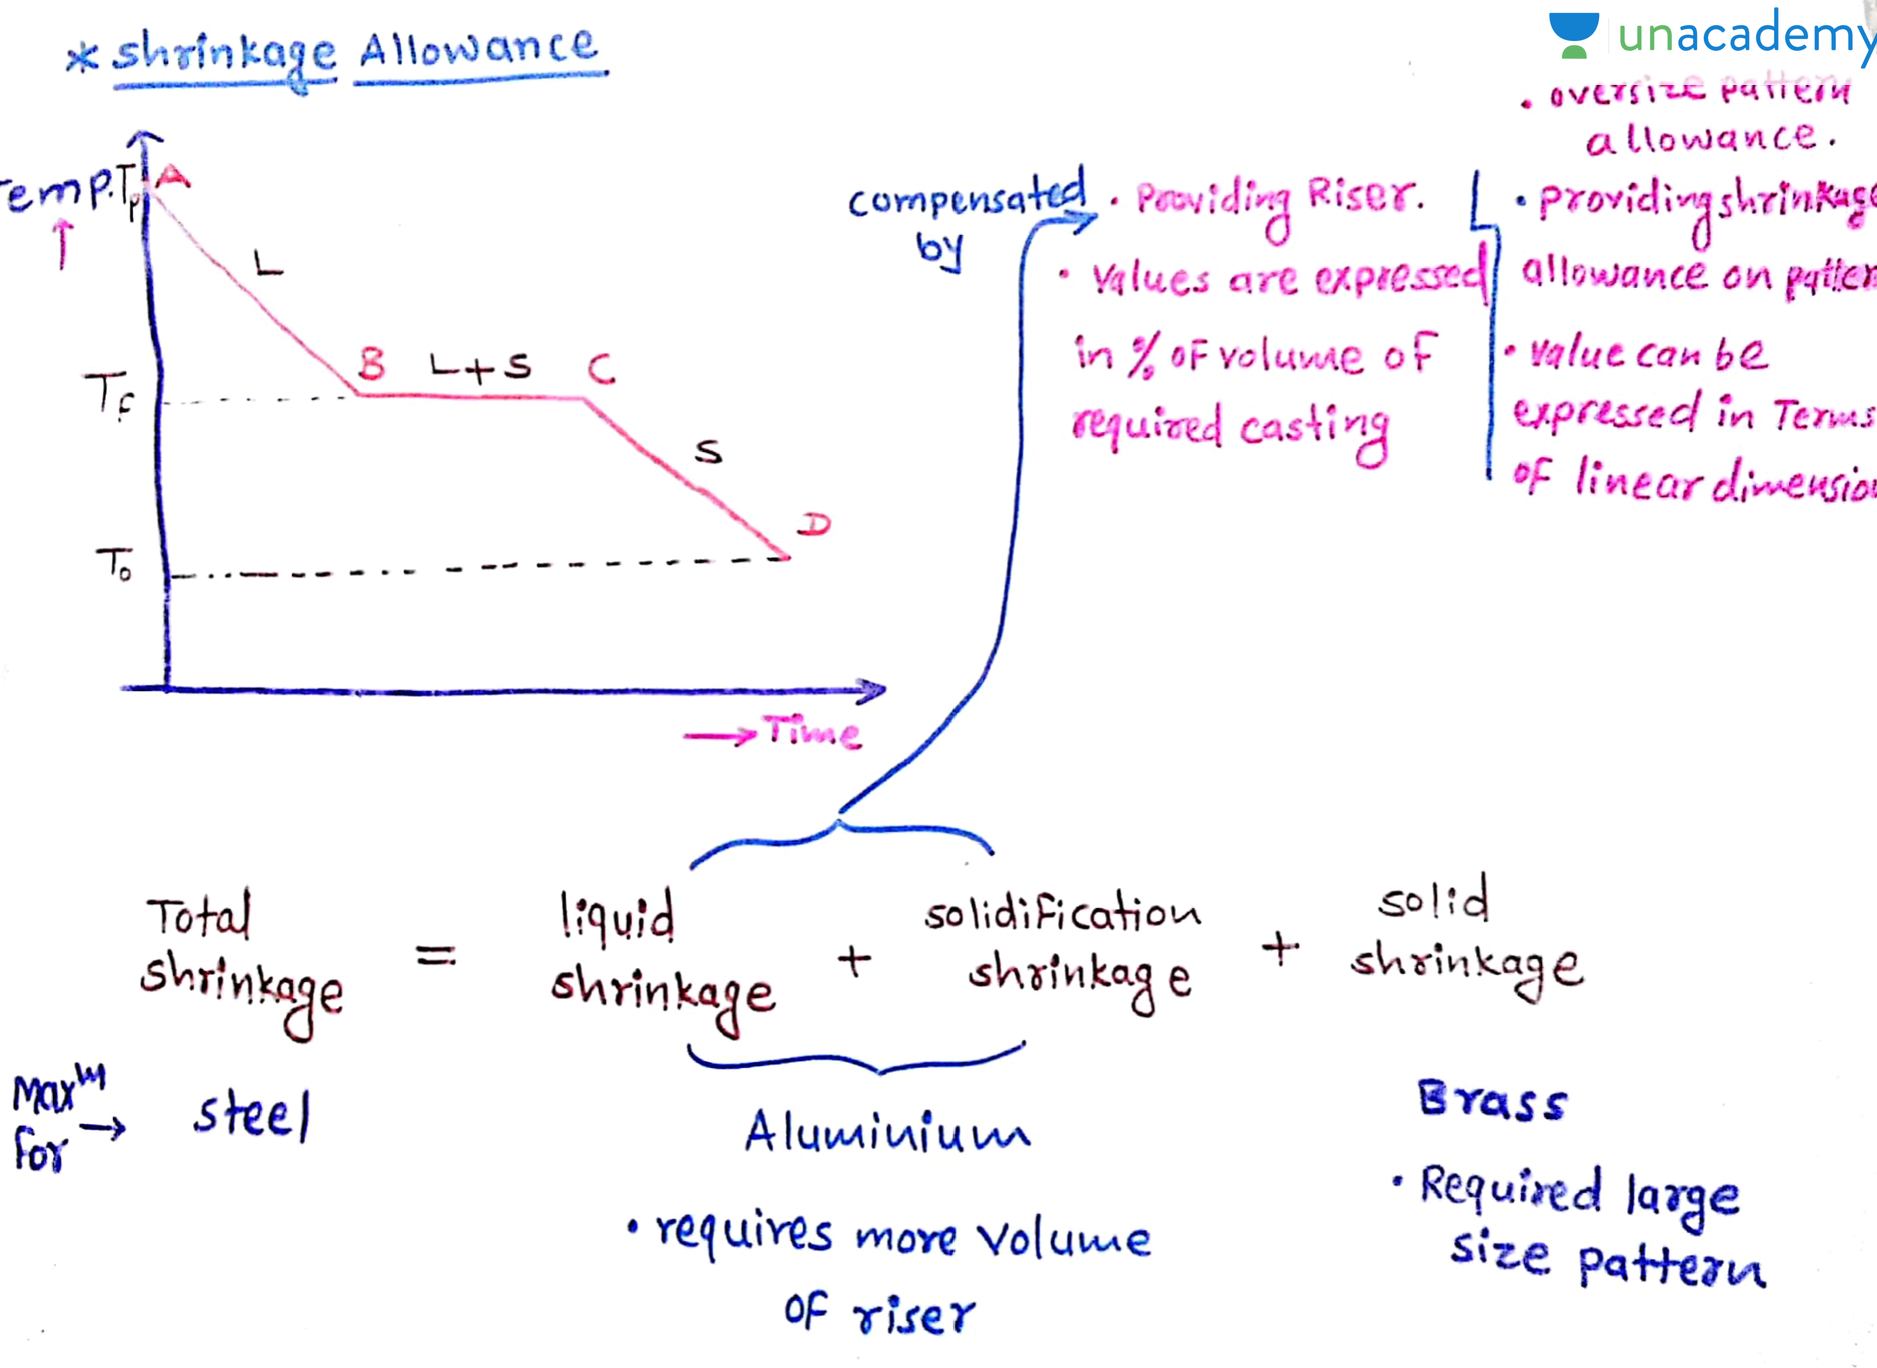 unacademy
* Shrinkage Allowance
. oversize pattern
allowance.
Temp. Tp A
↑
L
B L+S C
Tf
S
D
To
→ Time
compensated
by
• Providing Riser.
• Values are expressed
in % of volume of
required casting
• providing shrinkage
allowance on pattern
• value can be
expressed in Terms
of linear dimension
Total shrinkage = liquid shrinkage + solidification shrinkage + solid shrinkage
Maxm For → steel
Aluminium
• requires more volume
of riser
Brass
• Required large
size pattern